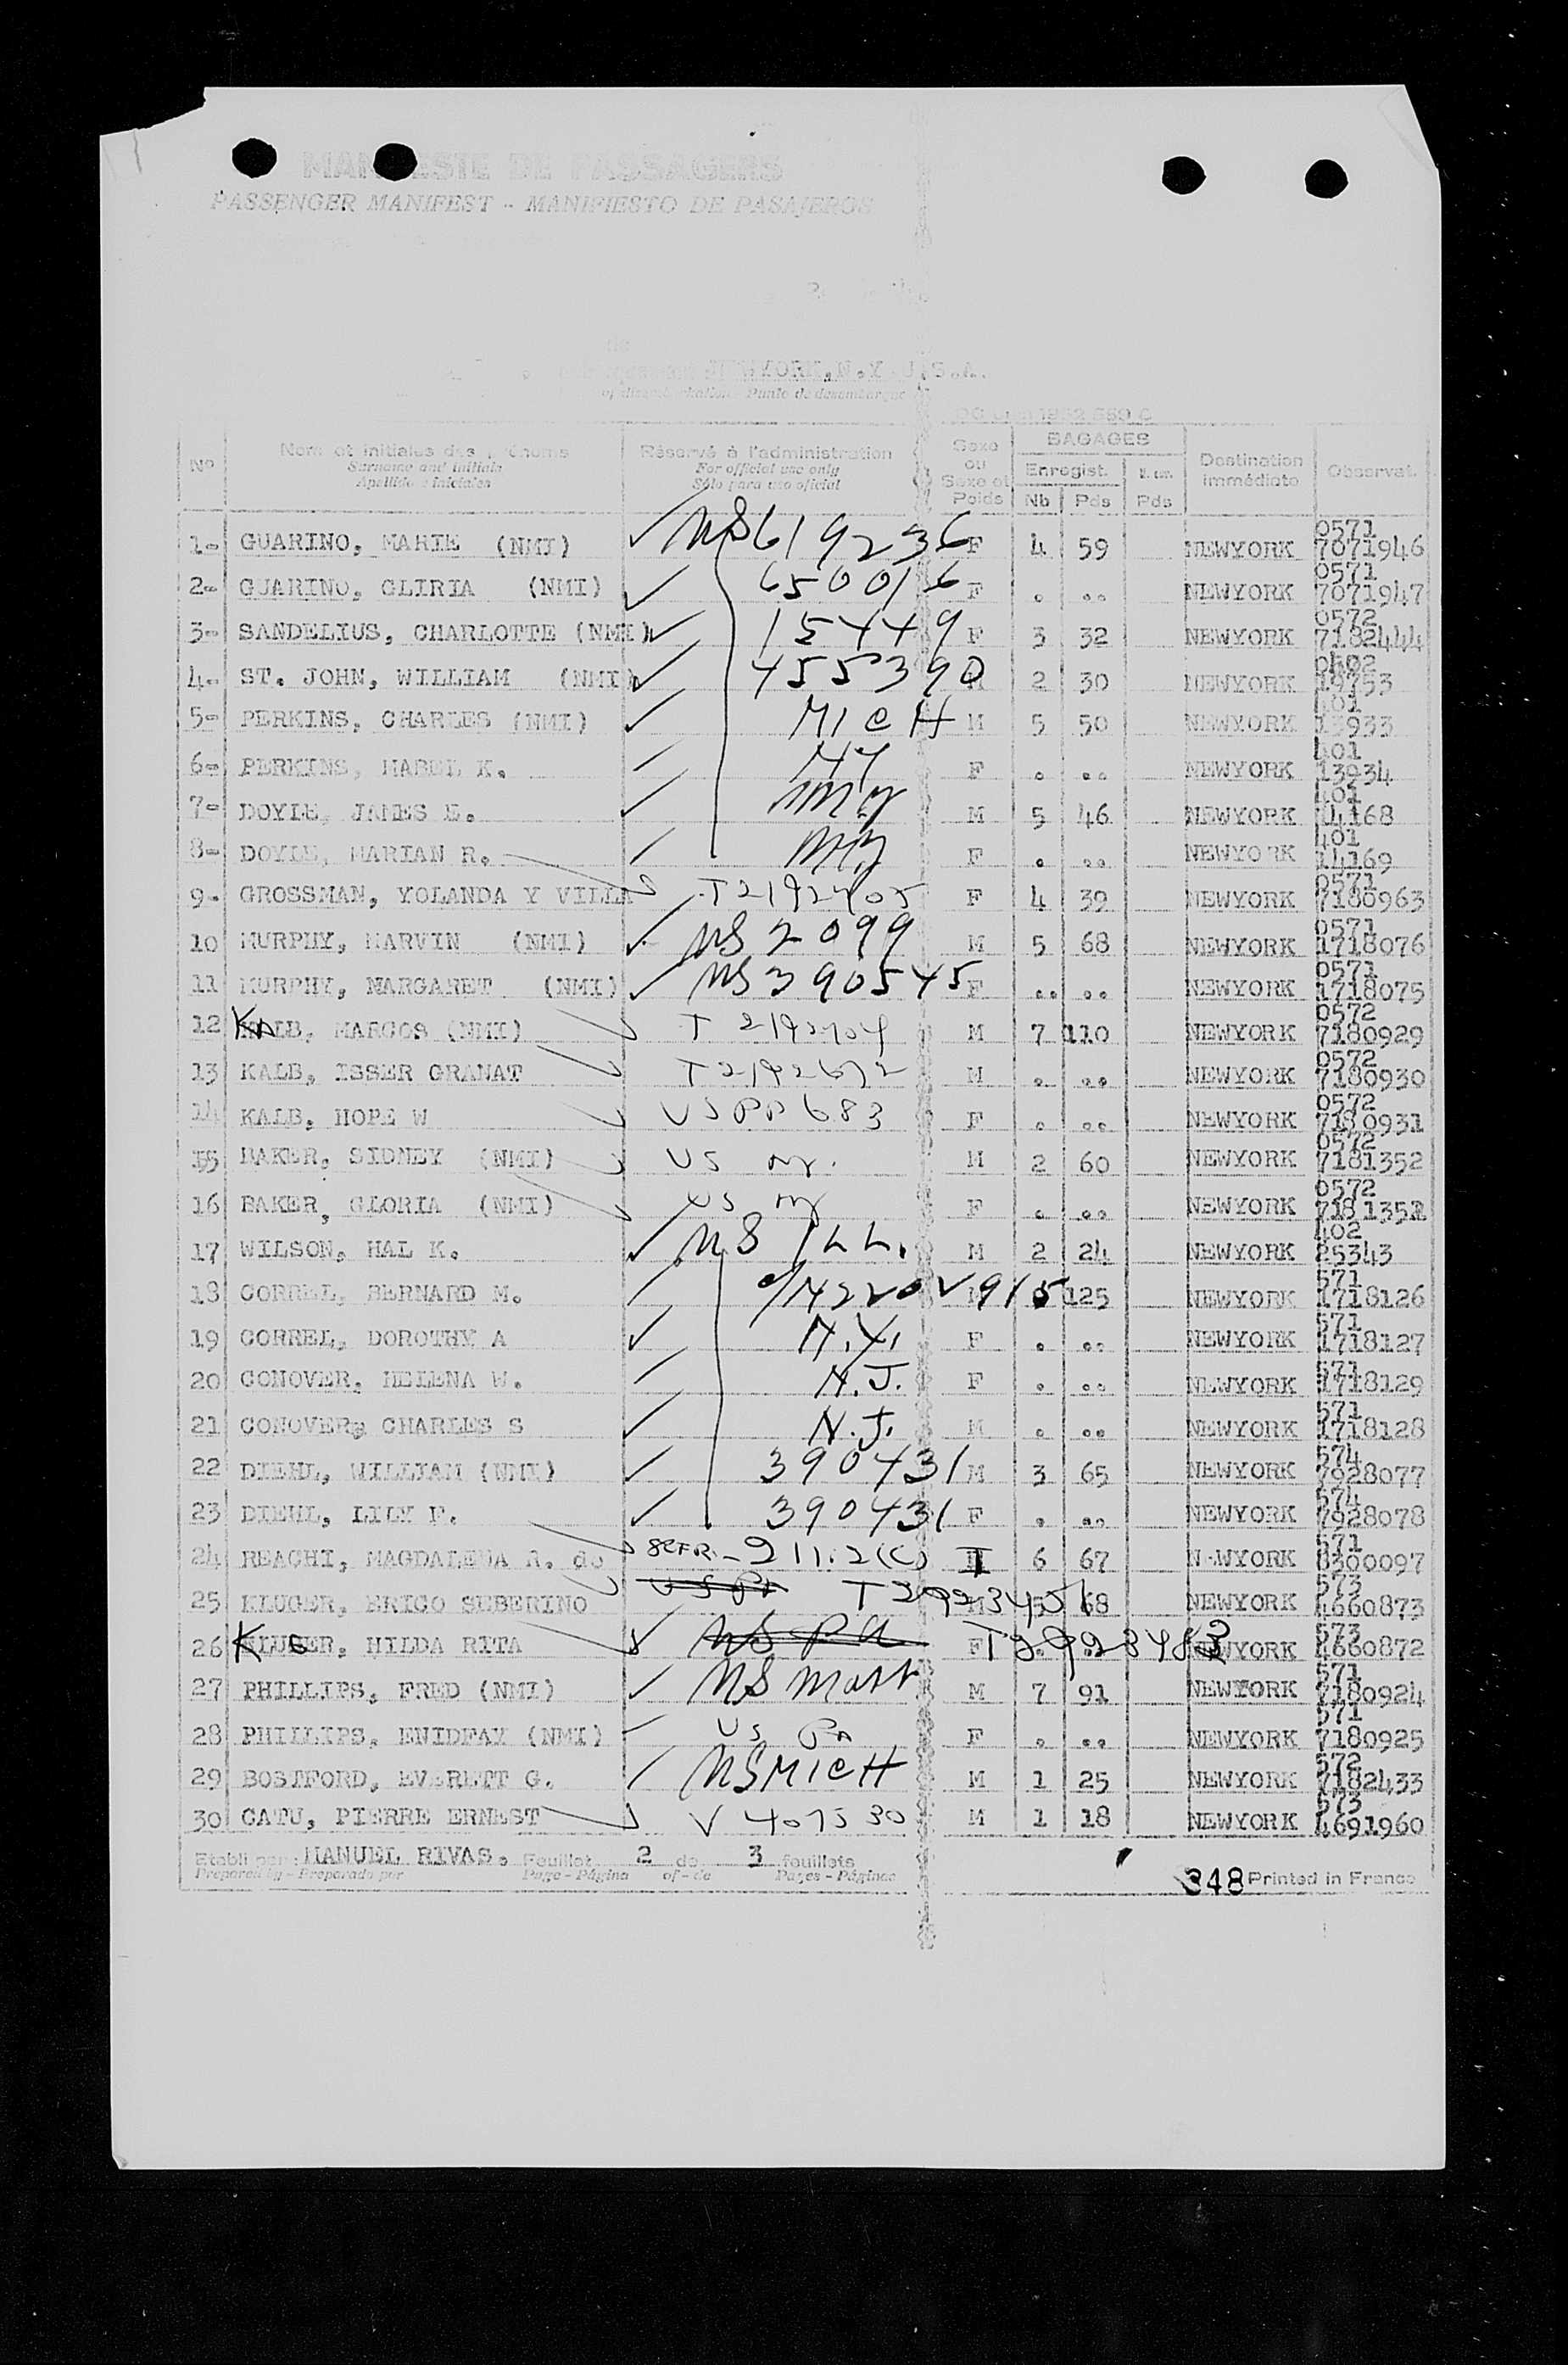 MANIFESTE DE PASSAGERS
PASSENGER MANIFEST - MANIFIESTO DE PASAJEROS
NEWYORK, N.Y. U.S.A.
Punto de desembarque
No Nom et initiales des prénoms Réservé à l'administration Sexe ou Sexe et Poids BAGAGES Destination immédiate Observat.
Surname and initials For official use only Enregist.
Apellido e iniciales Sólo para uso oficial Nb Pds Pds
1- GUARINO, MARIE (NMI) ✓ US 619236 F 4 59 NEWYORK 0571 7071946
2- GUARINO, GLIRIA (NMI) ✓ 650016 F . .. NEWYORK 0571 7071947
3- SANDELIUS, CHARLOTTE (NMI) ✓ 15449 F 3 32 NEWYORK 0572 7182444
4- ST. JOHN, WILLIAM (NMI) ✓ 455390 2 30 NEWYORK 19753
5- PERKINS, CHARLES (NMI) ✓ MICH M 5 50 NEWYORK 401 13933
6- PERKINS, MABEL K. ✓ F . .. NEWYORK 401 13934
7- DOYLE, JAMES E. ✓ M 5 46 NEWYORK 401 14168
8- DOYLE, MARIAN R. ✓ F . .. NEWYORK 401 14169
9- GROSSMAN, YOLANDA Y VILLA F 4 39 NEWYORK 0571 7180963
10 MURPHY, MARVIN (NMI) ✓ US 2099 M 5 68 NEWYORK 0571 1718076
11 MURPHY, MARGARET (NMI) ✓ US 390545 F .. .. NEWYORK 0571 1718075
12 KALB, MARCOS (NMI) M 7 110 NEWYORK 0572 7180929
13 KALB, ISSER GRANAT M . .. NEWYORK 0572 7180930
14 KALB, HOPE W US PP 683 F . .. NEWYORK 0572 7180931
15 BAKER, SIDNEY (NMI) US ny. M 2 60 NEWYORK 0572 7181352
16 BAKER, GLORIA (NMI) US ny F . .. NEWYORK 0572 7181351
17 WILSON, HAL K. ✓ US ILL. M 2 24 NEWYORK 402 25343
18 CORREL, BERNARD M. ✓ 125 NEWYORK 571 1718126
19 CORREL, DOROTHY A ✓ N.Y. F . .. NEWYORK 571 1718127
20 CONOVER, HELENA W. ✓ N.J. F . .. NEWYORK 571 1718129
21 CONOVER, CHARLES S ✓ N.J. M . .. NEWYORK 571 1718128
22 DIEHL, WILLIAM (NMI) ✓ 390431 M 3 65 NEWYORK 574 7928077
23 DIEHL, LILY F. ✓ 390431 F . .. NEWYORK 574 7928078
24 REACHI, MAGDALENA R. de 211.2(c) 6 67 NEWYORK 571 8300097
25 KLUGER, ERICO SUBERINO US Pa 68 NEWYORK 573 4660873
26 KLUGER, HILDA RITA ✓ US Pa F NEWYORK 573 4660872
27 PHILLIPS, FRED (NMI) ✓ US Mass M 7 91 NEWYORK 571 7180924
28 PHILLIPS, ENIDFAY (NMI) ✓ US Pa F . .. NEWYORK 571 7180925
29 BOSTFORD, EVERETT G. ✓ US MICH M 1 25 NEWYORK 572 7182433
30 CATU, PIERRE ERNEST V 407530 M 1 18 NEWYORK 573 4691960
Etabli par: MANUEL RIVAS. Feuillet 2 de 3 feuillets
Prepared by - Preparado por Page - Página of - de Pages - Páginas
348 Printed in France